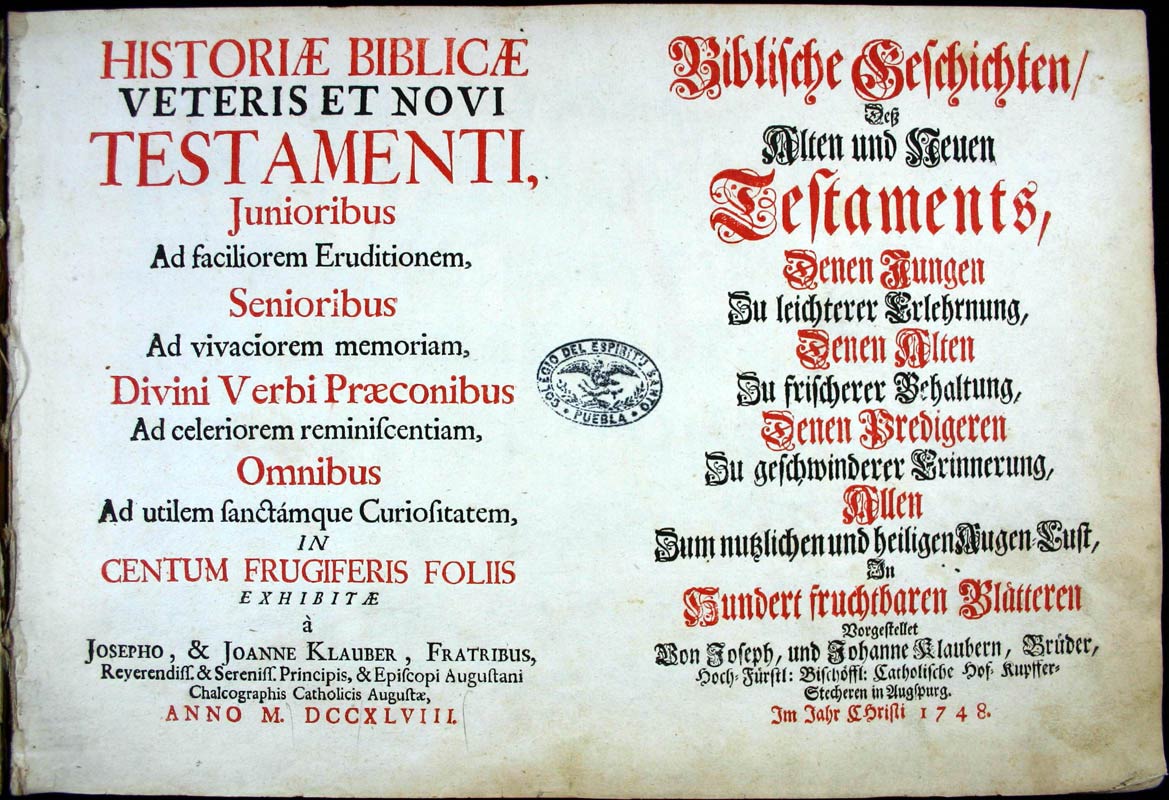 HISTORIÆ BIBLICÆ
VETERIS ET NOVI
TESTAMENTI,
Junioribus
Ad faciliorem Eruditionem,
Senioribus
Ad vivaciorem memoriam,
Divini Verbi Præconibus
Ad celeriorem reminiſcentiam,
Omnibus
Ad utilem ſanctámque Curioſitatem,
IN
CENTUM FRUGIFERIS FOLIIS
EXHIBITÆ
à
JOSEPHO, & JOANNE KLAUBER, FRATRIBUS,
Reverendiſſ. & Sereniſſ. Principis, & Epiſcopi Auguſtani
Chalcographis Catholicis Auguſtæ,
ANNO M. DCCXLVIII.
COLEGIO DEL ESPIRITU SANTO
PUEBLA
Bibliſche Geſchichten/
Deß
Alten und Neuen
Teſtaments,
Denen Jungen
Zu leichterer Erlehrnung,
Denen Alten
Zu friſcherer Behaltung,
Denen Predigeren
Zu geſchwinderer Erinnerung,
Allen
Zum nutzlichen und heiligen Augen-Luſt,
In
Hundert fruchtbaren Blätteren
Vorgeſtellet
Von Joſeph, und Johanne Klaubern, Brüder,
Hoch-Fürſtl: Biſchöffl: Catholiſche Hof-Kupffer-
Stecheren in Augſpurg.
Im Jahr CHriſti 1748.